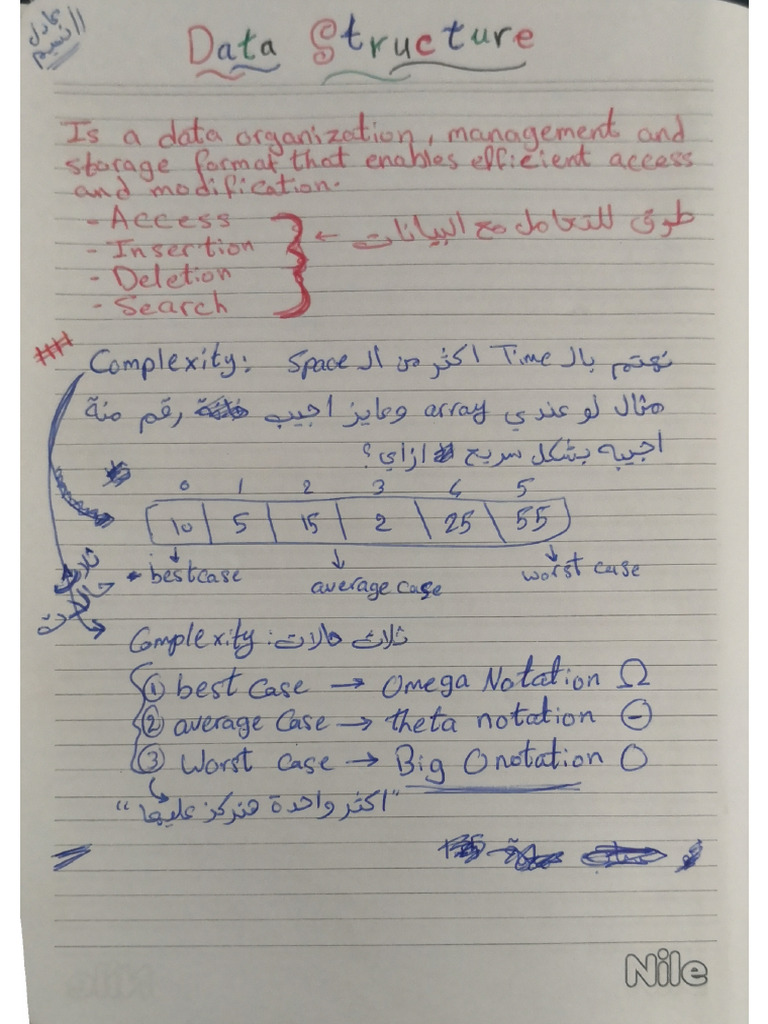 عادل النسيم
Data Structure
Is a data organization, management and
storage format that enables efficient access
and modification.
- Access
- Insertion
- Deletion
- Search
} ← طرق للتعامل مع البيانات
## Complexity: نهتم بال Time اكثر من ال Space
مثال لو عندي array وعايز اجيب رقم منة
اجيبه بشكل سريع ازاي؟
0 1 2 3 4 5
10 5 15 2 25 55
best case average case worst case
ثلاث حالات
Complexity: ثلاث حالات
① best case → Omega Notation Ω
② average Case → theta notation Θ
③ Worst case → Big O notation O
"اكثر واحدة هنركز عليها"
Nile